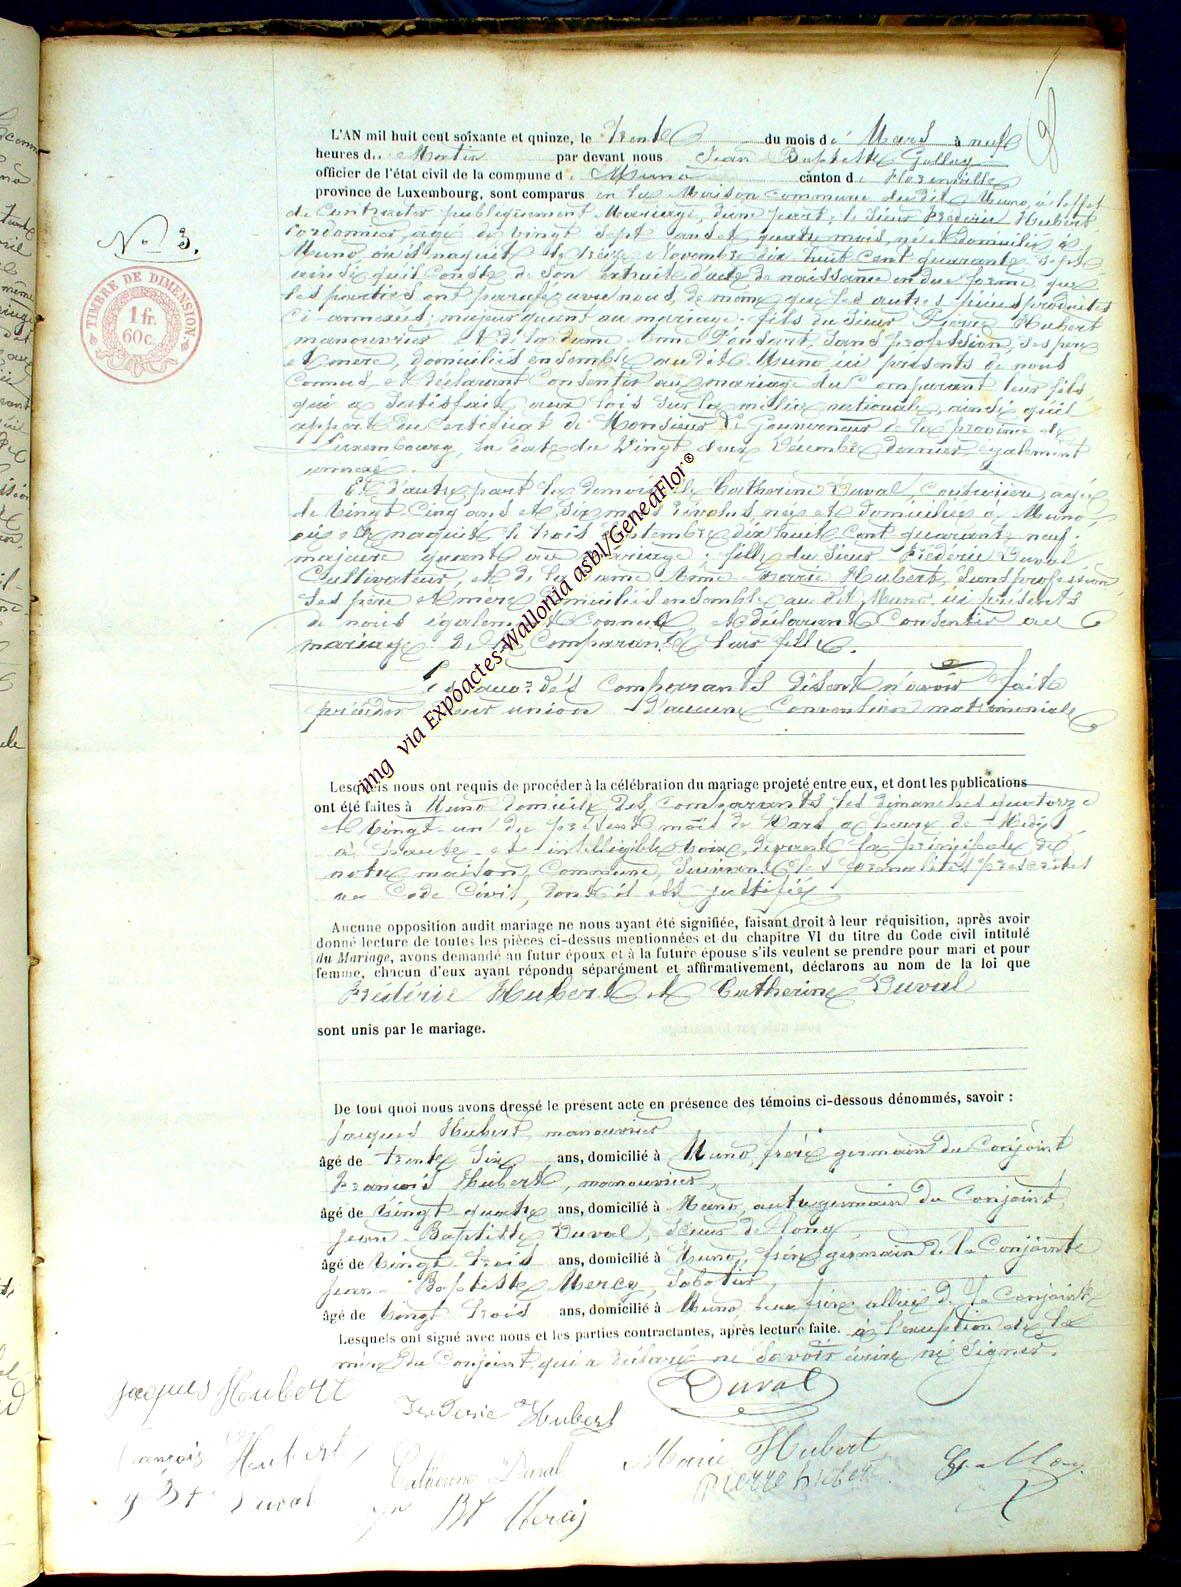 L'AN mil huit cent soixante et quinze, le Trente du mois de Mars à neuf
heures du Matin par devant nous Jean Baptiste Gallay
officier de l'état civil de la commune de Muno canton de Florenville
province de Luxembourg, sont comparus en la Maison commune du dit Muno, à l'effet
de Contracter publiquement Mariage, d'une part: le Sieur Fréderic Hubert
Cordonnier, agé de vingt sept ans et quatre mois, né et domicilié à
Muno où il naquit le treize Novembre dix huit Cent quarante sept
ainsi qu'il Conste de Son Extrait d'acte de naissance en due forme que
les parties ont paraphé avec nous, de même que les autres pièces produites
Ci-annexées; majeur quant au mariage: fils du Sieur Pierre Hubert
manouvrier et de la dame Anne Ponsart, Sans profession, Ses père
et mère, domiciliés ensemble au dit Muno ici présents de nous
Connus, et déclarant Consentir au mariage du Comparant leur fils,
qui a Satisfait aux lois Sur la milice nationale, ainsi qu'il
appert du Certificat de Monsieur le Gouverneur de la province de
Luxembourg, en date du Vingt deux Décembre dernier également
annexé.
N° 3.
TIMBRE DE DIMENSION.
1 fr.
60 c.
Et d'autre part la demoiselle Catherine Duval Couturière, agée
de Vingt Cinq ans et Six mois révolus née et domiciliée à Muno,
où elle naquit le trois Septembre dix huit Cent quarante neuf.
majeure quant au mariage; fille du Sieur Fréderic Duval
Cultivateur, et de la dame Anne Marie Hubert, Sans profession
Ses père et mère domiciliés ensemble au dit Muno ici présents
de nous également Connus et déclarant Consentir au
mariage de la Comparante leur fille.
Lesquels comparants disent n'avoir fait
précéder leur union d'aucune Convention matrimoniale
Lesquels nous ont requis de procéder à la célébration du mariage projeté entre eux, et dont les publications
ont été faites à Muno domicile des Comparants, les dimanches quatorze
et Vingt-un du présent mois de Mars à heure de Midi
à haute et intelligible voix, devant la principale de
notre maison Commune, Suivant les formalités prescrites
au Code Civil, dont il est justifié
Aucune opposition audit mariage ne nous ayant été signifiée, faisant droit à leur réquisition, après avoir
donné lecture de toutes les pièces ci-dessus mentionnées et du chapitre VI du titre du Code civil intitulé
du Mariage, avons demandé au futur époux et à la future épouse s'ils veulent se prendre pour mari et pour
femme, chacun d'eux ayant répondu séparément et affirmativement, déclarons au nom de la loi que
Fréderic Hubert et Catherine Duval
sont unis par le mariage.
De tout quoi nous avons dressé le présent acte en présence des témoins ci-dessous dénommés, savoir :
Jacques Hubert, manouvrier
âgé de trente Six ans, domicilié à Muno, frère germain du Conjoint
François Hubert, manouvrier,
âgé de Vingt-quatre ans, domicilié à Muno, autre germain du Conjoint
Jean Baptiste Duval, Scieur de long,
âgé de Vingt trois ans, domicilié à Muno, frère germain de la Conjointe
Jean Baptiste Mercy, Sabotier,
âgé de Vingt trois ans, domicilié à Muno, beau frère allié de la Conjointe,
Lesquels ont signé avec nous et les parties contractantes, après lecture faite. à l'exception de la
mère du Conjoint, qui a déclaré ne Savoir écrire ni Signer.
Jacques Hubert
Frederic Hubert
Duval
François Hubert
Catherine Duval
Marie Hubert
Pierre hubert
J Bt Duval
Jn Bt Mercy
img via Expoactes-Wallonia asbl/GeneaFlor®